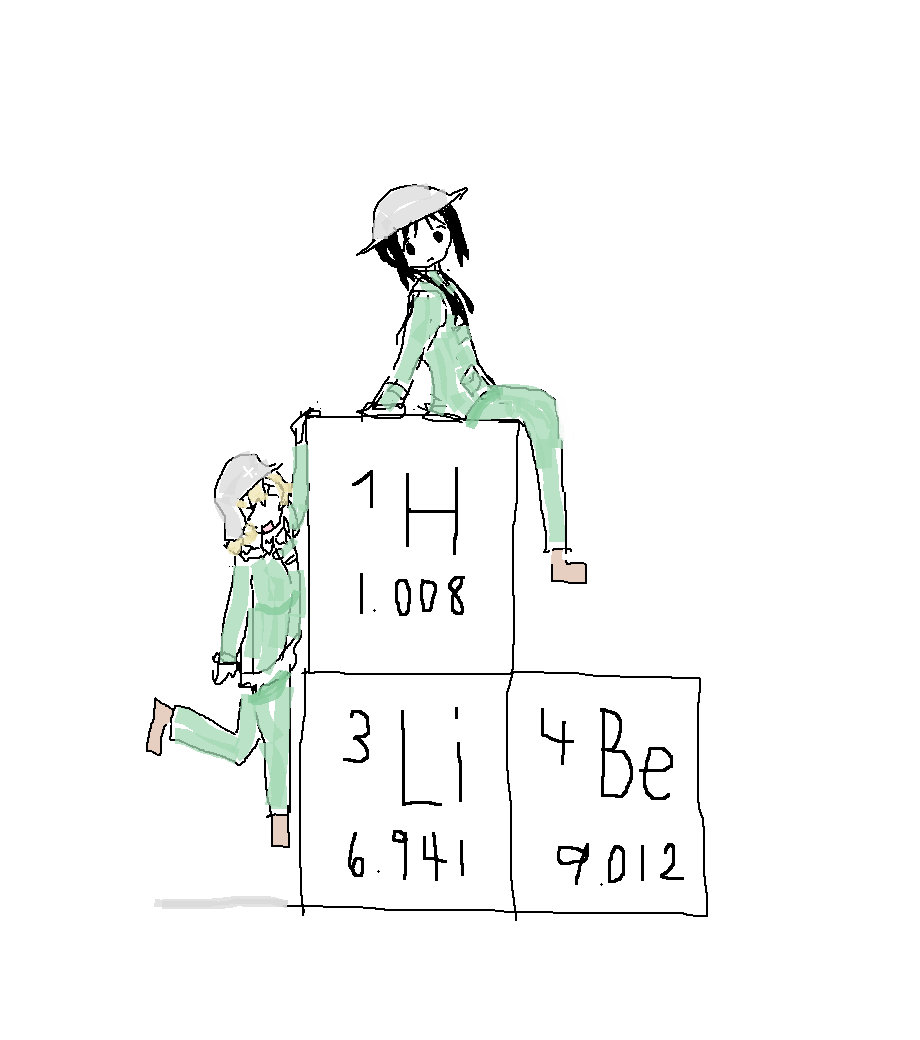 1 H
1.008
3 Li
6.941
4 Be
9.012